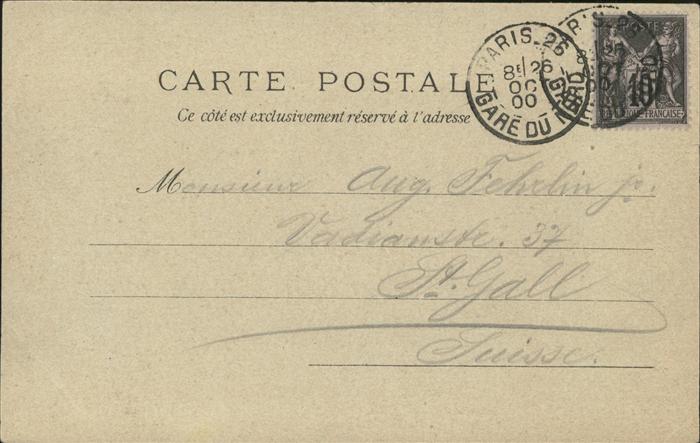 CARTE POSTALE
Ce côté est exclusivement réservé à l'adresse
PARIS. 26
8E 26
OC
00
GARE DU NORD
POSTE
10
FRANÇAISE
Monsieur Aug. Fehrlin jr.
Vadianstr. 37
St. Gall
Suisse.